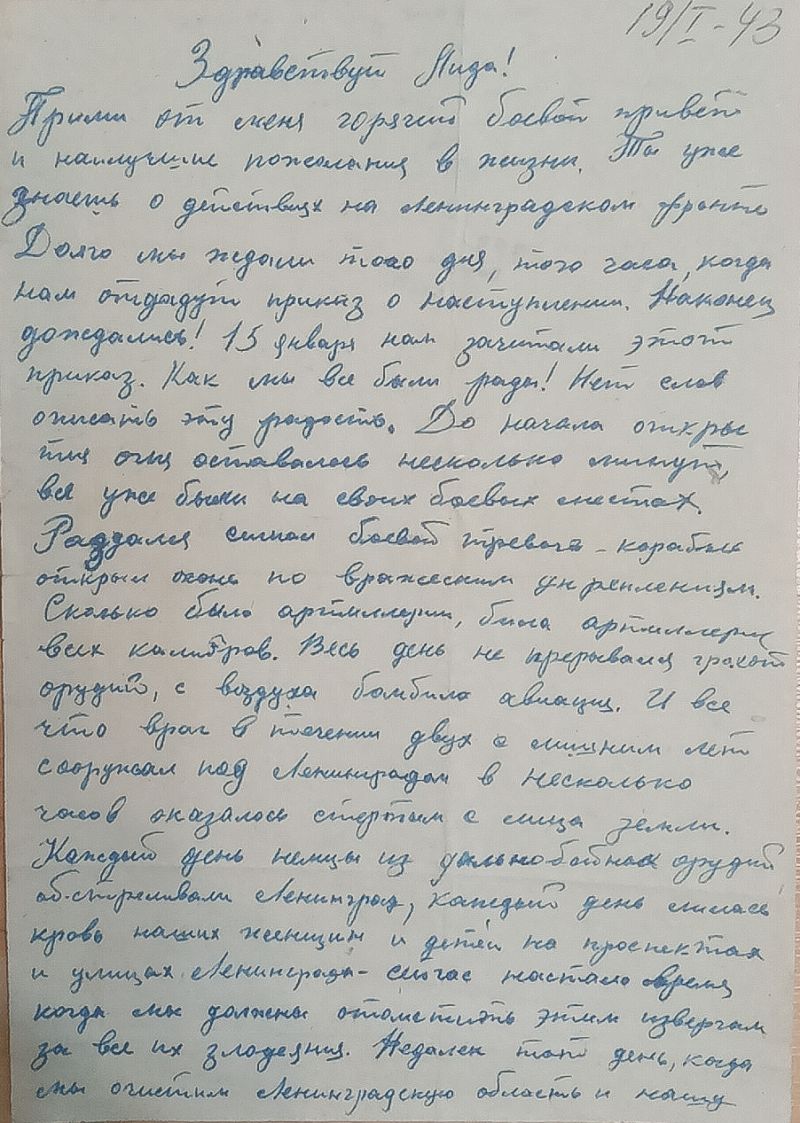 19/I-43
Здравствуй Лида!
Прими от меня горячий боевой привет
и наилучшие пожелания в жизни. Ты уже
знаешь о действиях на Ленинградском фронте
Долго мы ждали того дня, того часа, когда
нам отдадут приказ о наступлении. Наконец
дождались! 15 января нам зачитали этот
приказ. Как мы все были рады! Нет слов
описать эту радость. До начала откры
тия огня оставалось несколько минут,
все уже были на своих боевых местах.
Раздался сигнал боевой тревоги - корабли
открыли огонь по вражеским укреплениям.
Сколько было артиллерии, била артиллерия
всех калибров. Весь день не прерывался грохот
орудий, с воздуха бомбила авиация. И все
что враг в течении двух с лишним лет
сооружал под Ленинградом в несколько
часов оказалось стертым с лица земли.
Каждый день немцы из дальнобойных орудий
обстреливали Ленинград, каждый день лилась
кровь наших женщин и детей на проспектах
и улицах Ленинграда - сейчас настало время
когда мы должны отомстить этим извергам
за все их злодеяния. Недалек тот день, когда
мы очистим Ленинградскую область и нашу